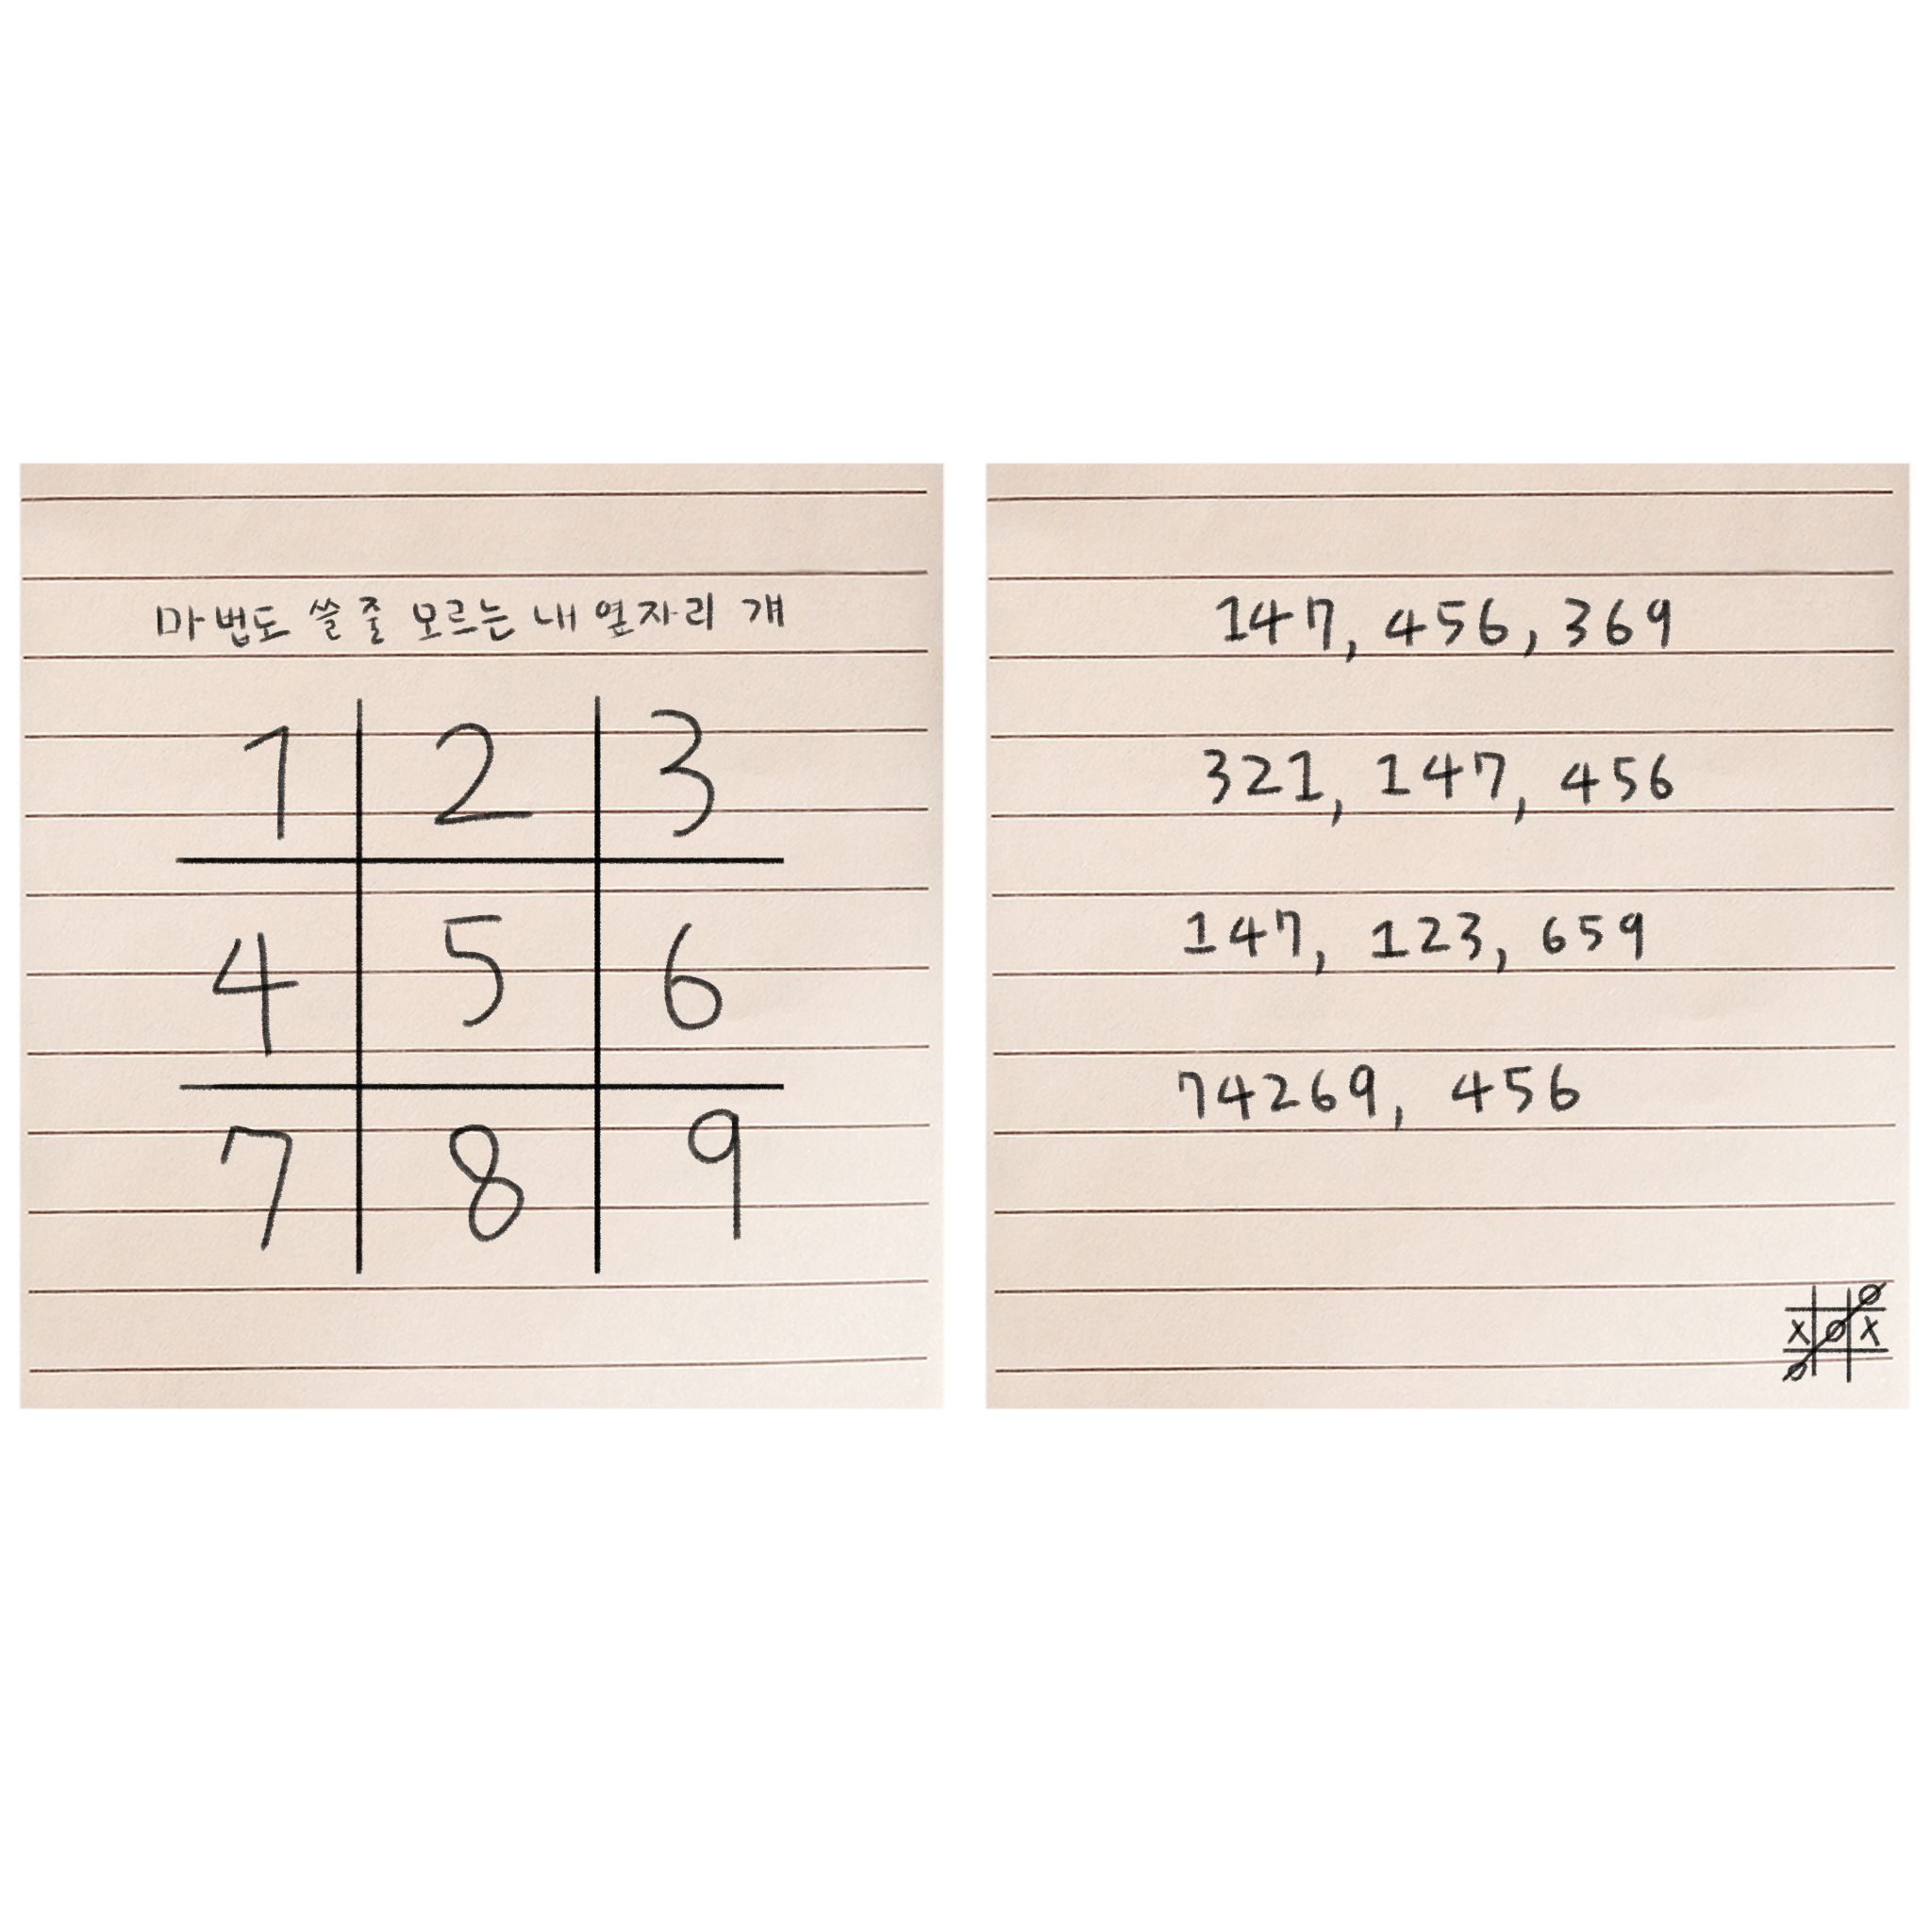 마법도 쓸 줄 모르는 내 옆자리 걔
1 2 3
4 5 6
7 8 9
147, 456, 369
321, 147, 456
147, 123, 659
74269, 456
O
X O X
O